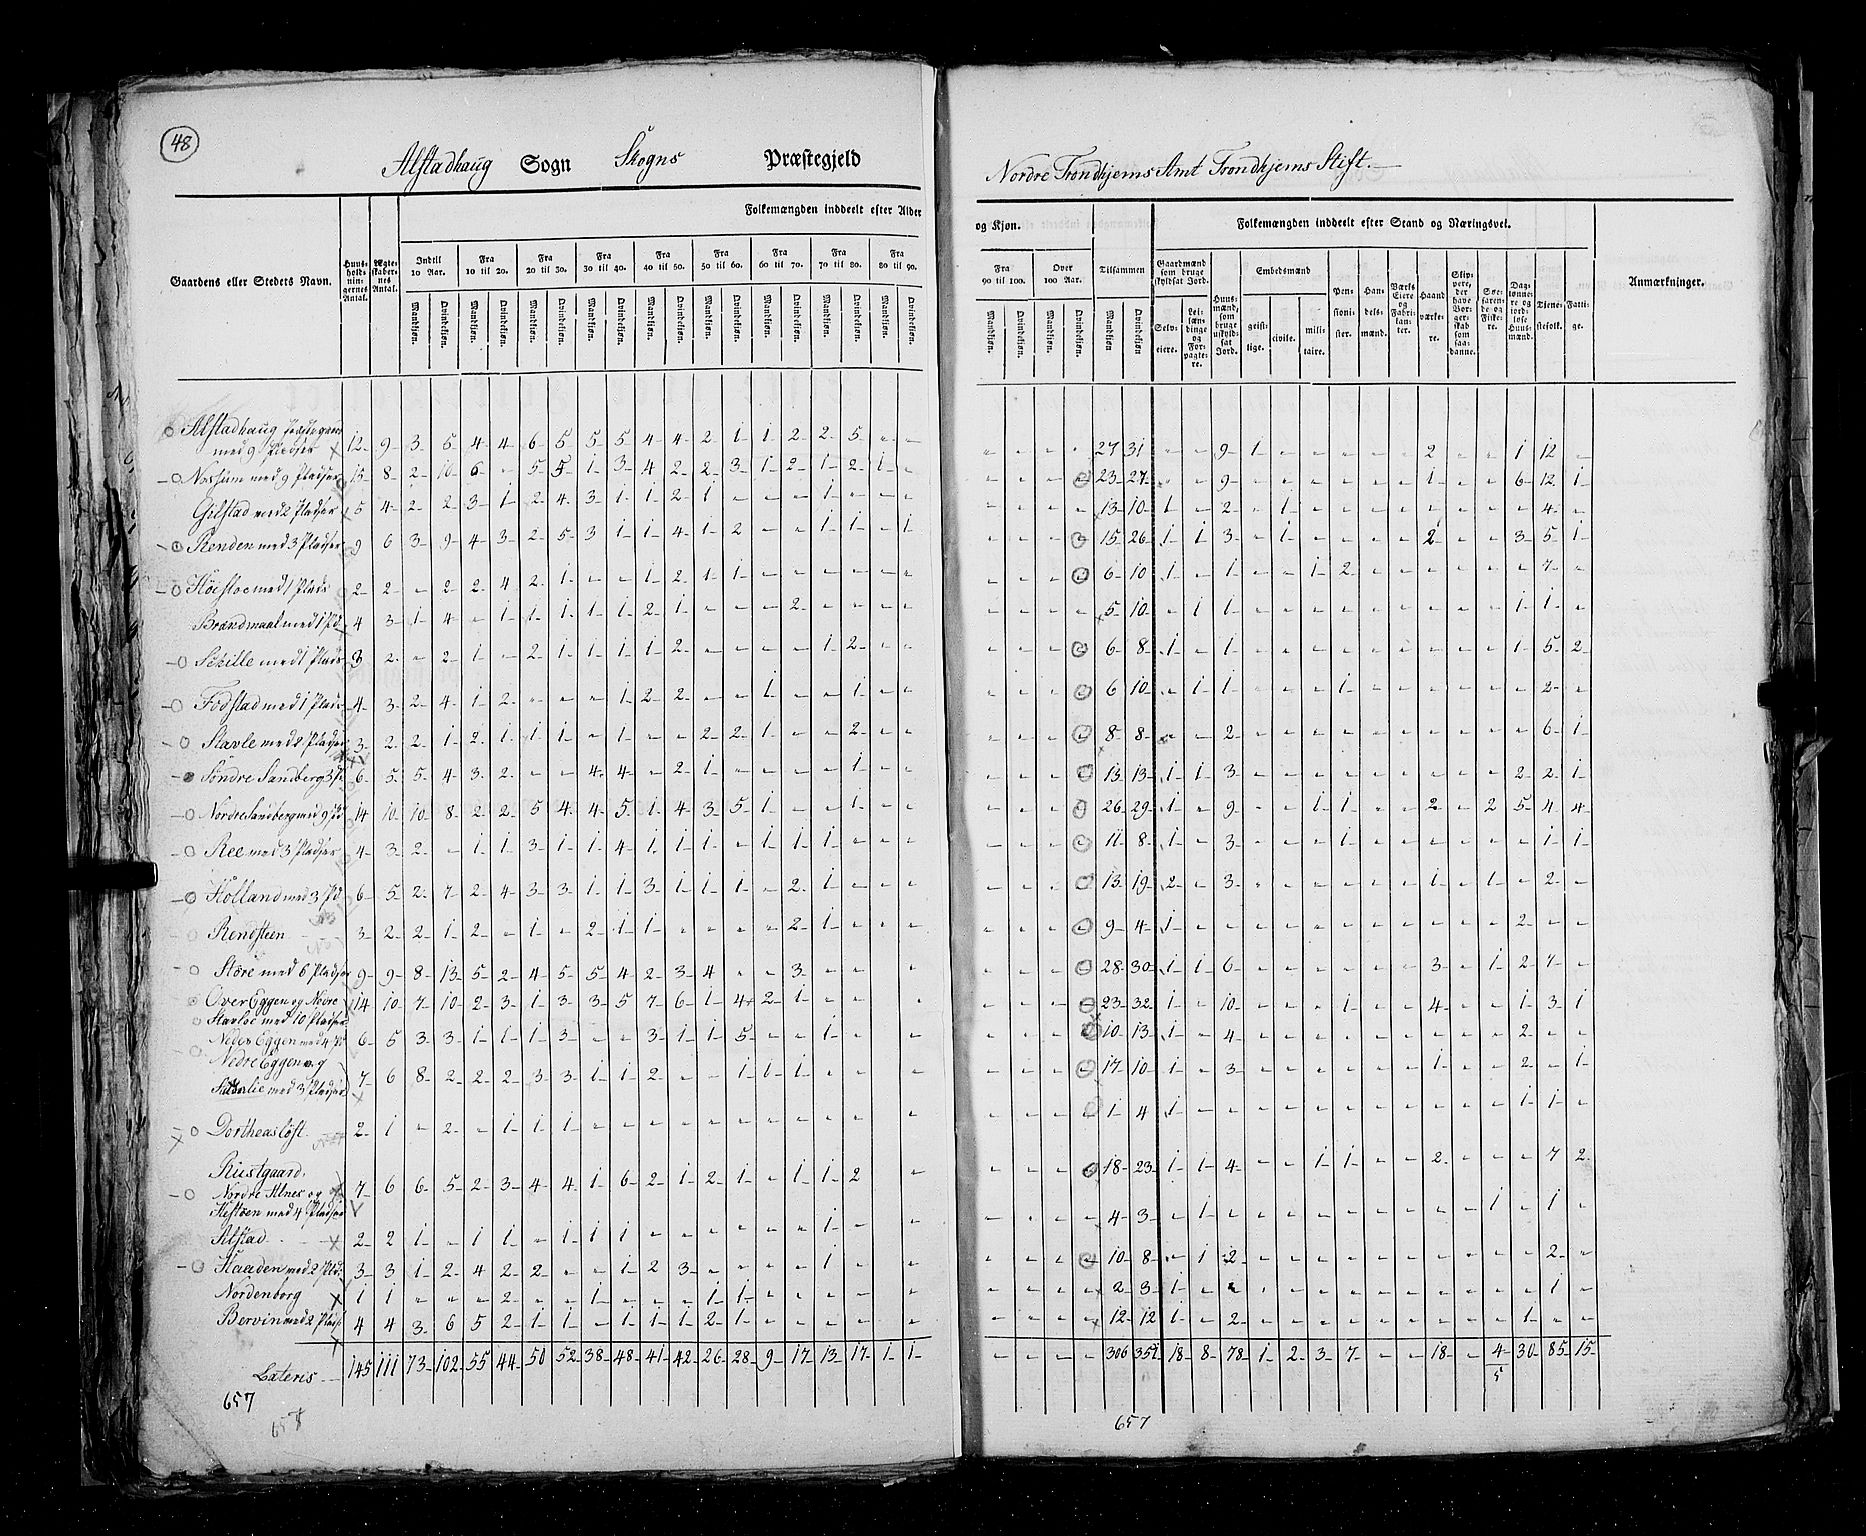 48
Alstadhaug Sogn Skogns Præstegjeld
Nordre Trondhjems Amt Trondhjems Stift.
Gaardens eller Stedets Navn.
Huus-holdningernes Antal.
Ægteskabernes Antal.
Folkemængden inddeelt efter Alder
og Kjøn.
Indtil 10 Aar.
Fra 10 til 20.
Fra 20 til 30.
Fra 30 til 40.
Fra 40 til 50.
Fra 50 til 60.
Fra 60 til 70.
Fra 70 til 80.
Fra 80 til 90.
Fra 90 til 100.
Over 100 Aar.
Tilsammen
Mandkjøn. Qvindekjøn.
Folkemængden inddeelt efter Stand og Næringsvei.
Gaardmænd som bruge skyldsat Jord.
Selveiere.
Leilændinge og Forpagtere.
Huusmænd, som bruge uskyldsat Jord.
Embedsmænd
geistlige.
civile.
militaire.
Pensionister.
Handelsmænd.
Værks Eiere og Fabrikanter.
Haandværkere.
Skippere, der have Borgerskab som saadanne.
Søefarende og Fiskere.
Daglønnere og jordløse Huusmænd.
Tjenestefolk.
Fattige.
Anmærkninger.
Alstadhaug Præstegaard
med 9 Pladser 12 9 3 5 4 4 6 5 5 5 4 4 2 1 1 2 2 5 " " " " " " 27 31 " " 9 1 " " " " " 2 " " 1 12 "
Nossum med 9 Pladser 15 8 2 10 6 " 5 5 1 3 4 2 2 3 1 2 1 2 1 " " " " " 23 27 " " 9 " " " " " " 1 " " 6 12 1
Gilstad med 2 Pladser 5 4 2 2 3 1 2 4 3 1 1 2 1 " " " 1 " " " " " " " 13 10 1 " 2 " 1 " " " " " " " " 4 "
Renden med 3 Pladser 9 6 3 9 4 3 2 5 3 1 1 4 1 2 " " 1 1 " 1 " " " " 15 26 1 1 3 " 1 " " " " 2 " " 3 5 1
med 1 Plads 2 2 " 2 2 4 2 1 " " 1 2 1 1 " " " " " " " " " " 6 10 1 " 1 " " 1 2 " " " " " " 7 "
Brandmaal med 1 Pl. 4 3 1 4 " 1 1 1 1 1 2 1 " " " 2 " " " " " " " " 5 10 " 1 1 " " " " " " " " " 1 1 "
med 1 Plads 3 2 " 2 1 " 2 1 1 1 1 2 " " " " 1 2 " " " " " " 6 8 1 " 1 " " " " " " " " " 1 5 2
Fodstad med 1 Plads 4 3 2 4 1 2 " " " 1 2 2 " " 1 " " 1 " " " " " " 6 10 " 1 1 " " " 1 " " " " " " 2 "
Stavle med 2 Pladser 3 2 2 1 2 1 1 1 " 1 " " 2 2 1 " " 2 " " " " " " 8 8 " " 2 " " " " " " " " " " 6 1
Søndre Sandberg 3 Pl. 6 5 5 4 3 2 " " 4 4 " 2 1 " " " " 1 " " " " " " 13 13 1 1 3 " " " " " " " " " 2 2 1
Nordre Sandberg med 9 Pl. 14 10 10 8 2 2 5 4 4 5 1 4 3 5 1 " " 1 " " " " " " 26 29 1 " 9 " " 1 1 " " 2 " 2 5 4 4
Ree med 3 Pladser 4 3 2 " 1 1 3 1 1 4 1 1 1 " 1 1 1 " " " " " " " 11 8 1 " 3 " " " 1 " " " " " " 1 1
Holland med 3 Pl. 6 5 2 7 2 4 3 3 1 1 3 1 1 1 " 2 1 " " " " " " " 13 19 2 " 3 " " " " " " 1 " 1 " 2 "
Rendsteen 3 2 2 1 2 " 1 " 2 1 1 " " " " 2 1 " " " " " " " 9 4 1 " " " " " " " " " " " 2 " "
Støre med 6 Pladser 9 9 8 13 5 2 4 5 5 4 2 3 4 " " 3 " " " " " " " 28 30 1 1 6 " " " " " " 3 " 1 2 7 "
Over Eggen og Nedre
Stavloe med 10 Pladser 14 10 7 10 2 3 1 3 3 5 7 6 1 4 2 1 " " " " " " " 23 32 1 " 10 " " " 1 " " 4 " " 1 3 1
Neder Eggen med 4 Pl. 6 5 3 3 1 1 1 3 " " 3 1 1 5 " " 1 " " " " " " 10 13 1 " 4 " " " " " " " " " 2 " "
Nedre Eggen og
med 3 Pladser 7 6 8 2 2 2 3 3 1 1 2 " " 1 1 1 1 " " " " " " 17 10 1 " 3 " " " " " " 1 " " 2 " 1
Dortheas løst 2 1 " 2 " 1 1 1 " " " " " " " " " " " " " " " 1 4 1 " " " " " " " " " " " 1 1 "
Rustgaard,
Nordre Alnes og
med 4 Pladser 7 6 6 5 2 3 4 4 1 6 2 1 2 1 " 1 1 2 " " " " " 18 23 1 1 4 " " 1 1 " " 2 " " " 7 2
Alstad 2 2 1 " 1 1 " 1 1 1 " " " " " " 1 " " " " " " 4 3 " 1 " " " " " " " " " 1 " 1 "
Haaden med 2 Pld. 3 3 1 2 4 2 2 " " 1 2 3 " " " " 1 " " " " " " 10 8 " 1 2 " " " " " " " " " " 2 "
Nordenborg 1 1 " " " 2 " " 1 " " " 1 1 " " " " " " " " " 2 3 1 " " " " " " " " " " " " 1 "
Bervin med 2 Plads. 4 4 3 6 5 2 1 1 " 1 1 1 2 1 " " " " " " " " " 12 12 1 " 2 " " " " " " " " " 1 " "
Lateris 145 111 73 102 55 44 50 52 38 48 41 42 26 28 9 17 13 17 1 1 " " " " 306 351 18 8 78 1 2 3 7 " " 18 " 4 30 85 15
5
657
657
657